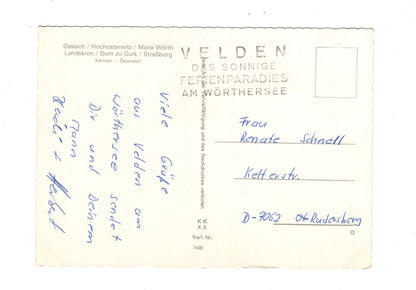 Ossiach / Hochosterwitz / Maria Wörth
Landskron / Dom zu Gurk / Straßburg
Kärnten – Österreich
VELDEN
DAS SONNIGE
FERIENPARADIES
AM WÖRTHERSEE
Viele Grüße
aus Velden am
Wörthersee sendet
Dir und Deinem
Mann
Herbert
der Vervielfältigung und des Nachdruckes verboten
KK
XX
Verl. Nr.
Frau
Renate Schnell
Kelterstr.
D-7062 Rudersberg